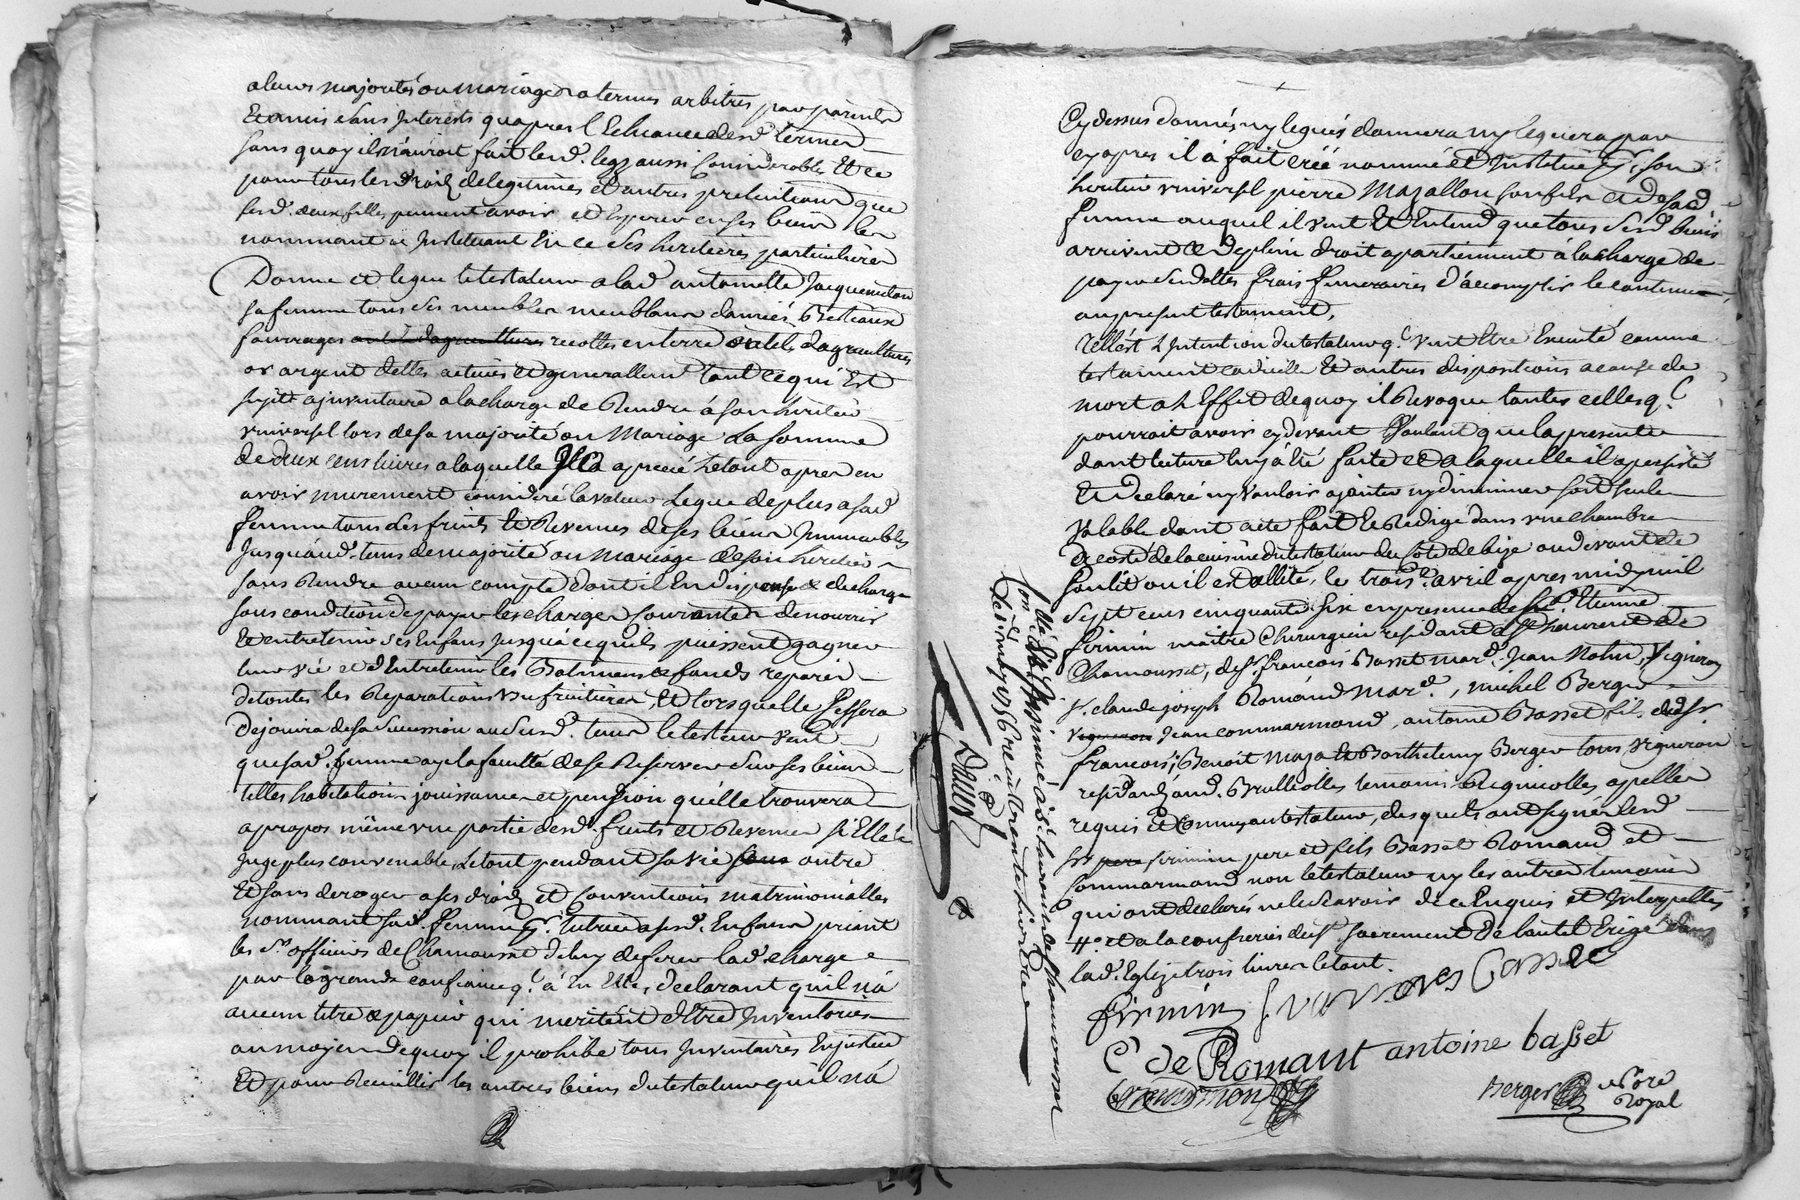 aleurs majorités ou mariages a termes arbitrés par parents
Et amis sans Interests qu apres l Echeance desd. termes
sans quoy il n'auroit fait lesd. legs aussi Considerables Et ce
pour tous les droits de legitimes et autres pretentions que
sesd. deux filles peuvent avoir et Esperer en ses biens les
nommant et Instituant En ce ses heritieres particulieres
Donne et legue le testateur a lad. antoinette Jacquemeton
sa femme tous ses meubles meublans danrées Bestiaux
fourrages outils d'agricultures recoltes en terre outils dagricultures
or argent dettes actives Et generallement tout ce qui Est
sujet a jnventaire a la charge de Rendre à son heritier
vniversel lors de sa majorité ou Mariage La somme
de deux cens livres a laquelle Il a aprecié le tout apres en
avoir murement consideré la valeur Legue de plus a sad.
femme tous les fruits Et Revenus de ses biens Immeubles
Jusqu'aud. tems de majorité ou mariage de son heritier
sans Rendre aucun compte dont il En dispense & decharge
sous condition de payer les charges courantes de nourrir
Et entretenir ses Enfans jusqua ce quils puissent gagner
leur vie et d'Entretenir les Batimens & fonds reparés
de toutes les Reparations vsufruitieres, Et lorsquelle cessera
De jouir de sa succession au susd. tems le testateur veut
que sad. femme aye la faculté de se Reserver sur ses biens
telles habitations jouissances et pension quelle trouvera
a propos même vne partie desd. fruits et Revenus si Elle le
juge plus convenable, le tout pendant sa vie sans outre
Et sans deroger a ses droits et Conventions matrimonialles
nommant sad. femme tutrice a sesd. Enfans priant
les Srs officiers de Chamousset de luy deferer lad. charge
par la grande confiance q. à En Elle, declarant quil n'a
aucun titre & papier qui meritent d'Etre Inventoriés
au moyen de quoy il prohibe tous Inventaires En justice
Et pour Recuillir les autres biens du testateur qu'il n'a
Cy dessus donnés ny legués donnera ny leguera par
cy apres il à fait créé nommé et Institué pr. son
heritier vniversel pierre Mazallon son fils et de sad.
femme auquel il veut Et Entend que tous sesd. biens
arrivent & de plein droit apartiennent à la charge de
payer ses dettes frais funeraires d'acomplir le contenu
au present testament,
Telle est L'Intention du testateur q. veut Etre Executé comme
testament codicille Et autres dispositions a cause de
mort a l Effet de quoy il Revoque toutes celles q.
pourroit avoir cy devant Voulant que la presente
dont lecture luy a été faite et a laquelle il a persisté
Et declaré ny vouloir ajouter ny diminuer soit seule
valable dont acte fait & Redigé dans vne chambre
de coté de la cuisine du testateur du côté de bize au devant de
son lit ou il est allité, le trois avril apres midy mil
sept cens cinquante six en presence de Etienne
firmin maitre Chirurgien residant a St. Laurent de
Chamousset, de Sr. françois Basset mard. Jean Vigneron
Sr. claude joseph Romand mard., michel Berger
vigneron Jean commarmond, antoine Basset fils dud. Sr.
françois, Benoit Maza Et Barthelemy Berger tous Vigneron
residants aud. Brullioles temoins Requis apellés
requis et Connus au testateur, desquels ont signé lesd.
Srs pere firmin pere et fils Basset Romand et
Commarmond non le testateur ny les autres temoins
qui ont declarés ne le scavoir de ce Enquis et Interpellés
# et a la confrerie du St. sacrement De l'autel Erigé dans
lad. Eglize trois livres le tout.
firmin francois Basset
C de Romant antoine basset
Commarmon
Berger No.re
Royal
Con.llé Et Insinué à St. Laurent de Chamousset
Le 1756 Recu treize